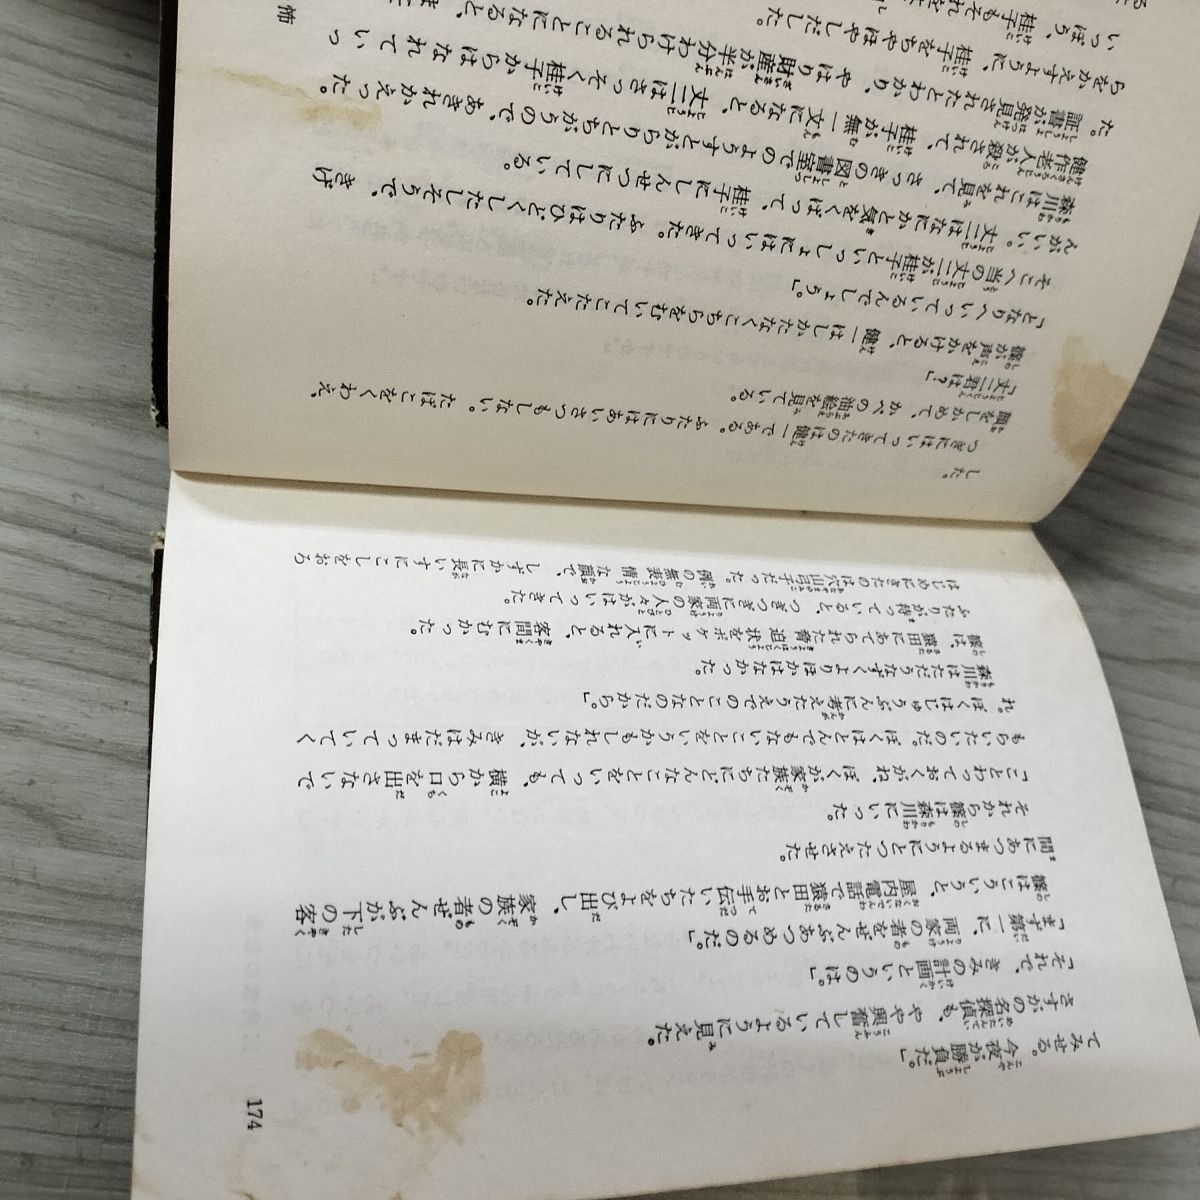 てみせる。今夜が勝負だ。」
さすがの名探偵も、やや興奮しているように見えた。
「それで、きみの計画というのは。」
「まず第一に、両家の者をぜんぶあつめるのだ。」
篠はこういうと、屋内電話で猿田とお手伝いたちをよび出し、家族の者ぜんぶが下の客
間にあつまるようにとつたえさせた。
それから篠は森川にいった。
「ことわっておくがね、ぼくが家族たちにどんなことをいっても、横から口を出さないで
もらいたいのだ。ぼくはとんでもないことをいうかもしれないが、きみはだまっていてく
れ。ぼくはじゅうぶんに考えたうえでのことなのだから。」
森川はただうなずくよりほかはなかった。
篠は、猿田にあてられた脅迫状をポケットに入れると、客間にむかった。
ふたりが待っていると、つぎつぎに両家の人々がはいってきた。
はじめにきたのは穴山弓子だった。例の無表情な顔で、しずかに長いすにこしをおろ
174
した。
つぎにはいってきたのは健一である。ふたりにはあいさつもしない。たばこをくわえ、
顔をしかめて、かべの油絵を見ている。
「丈二君は?」
篠が声をかけると、健一はしかたなくこちらをむいてこたえた。
「となりへいっているんでしょう。」
そこへ当の丈二が桂子といっしょにはいってきた。ふたりはひどくしたしそうで、きげ
んがいい。丈二はなにかと気をくばって、桂子にしんせつにしている。
森川はこれを見て、さっきの図書室でのようすとがらりとちがうので、あきれかえった。
健作老人が殺されて、桂子が無一文になると、丈二はさっそく桂子からはなれていっ
た。証書が発見されたとわかり、やはり財産が半分わけられることになると、
らをかえすように、桂子をちやほやしだした。
いっぽう、桂子もそれを
怖